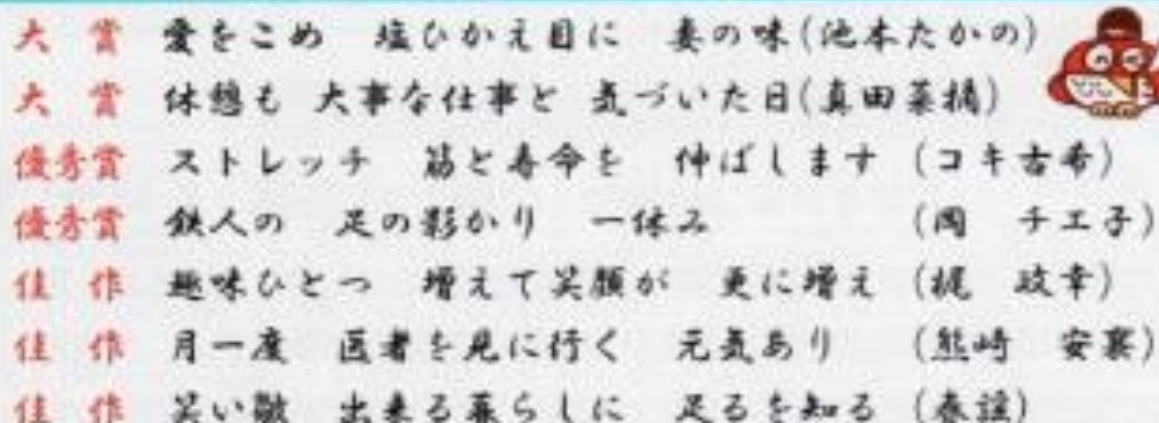 大賞 愛をこめ 塩ひかえ目に 妻の味(池本たかの)
大賞 休憩も 大事な仕事と 気づいた日(真田菜摘)
優秀賞 ストレッチ 筋と寿命を 伸ばします (コキ古希)
優秀賞 鉄人の 足の影かり 一休み (岡 チエ子)
佳作 趣味ひとつ 増えて笑顔が 更に増え (梶 政幸)
佳作 月一度 医者を見に行く 元気あり (熊崎 安)
佳作 笑い皺 出来る暮らしに 足るを知る (春謡)